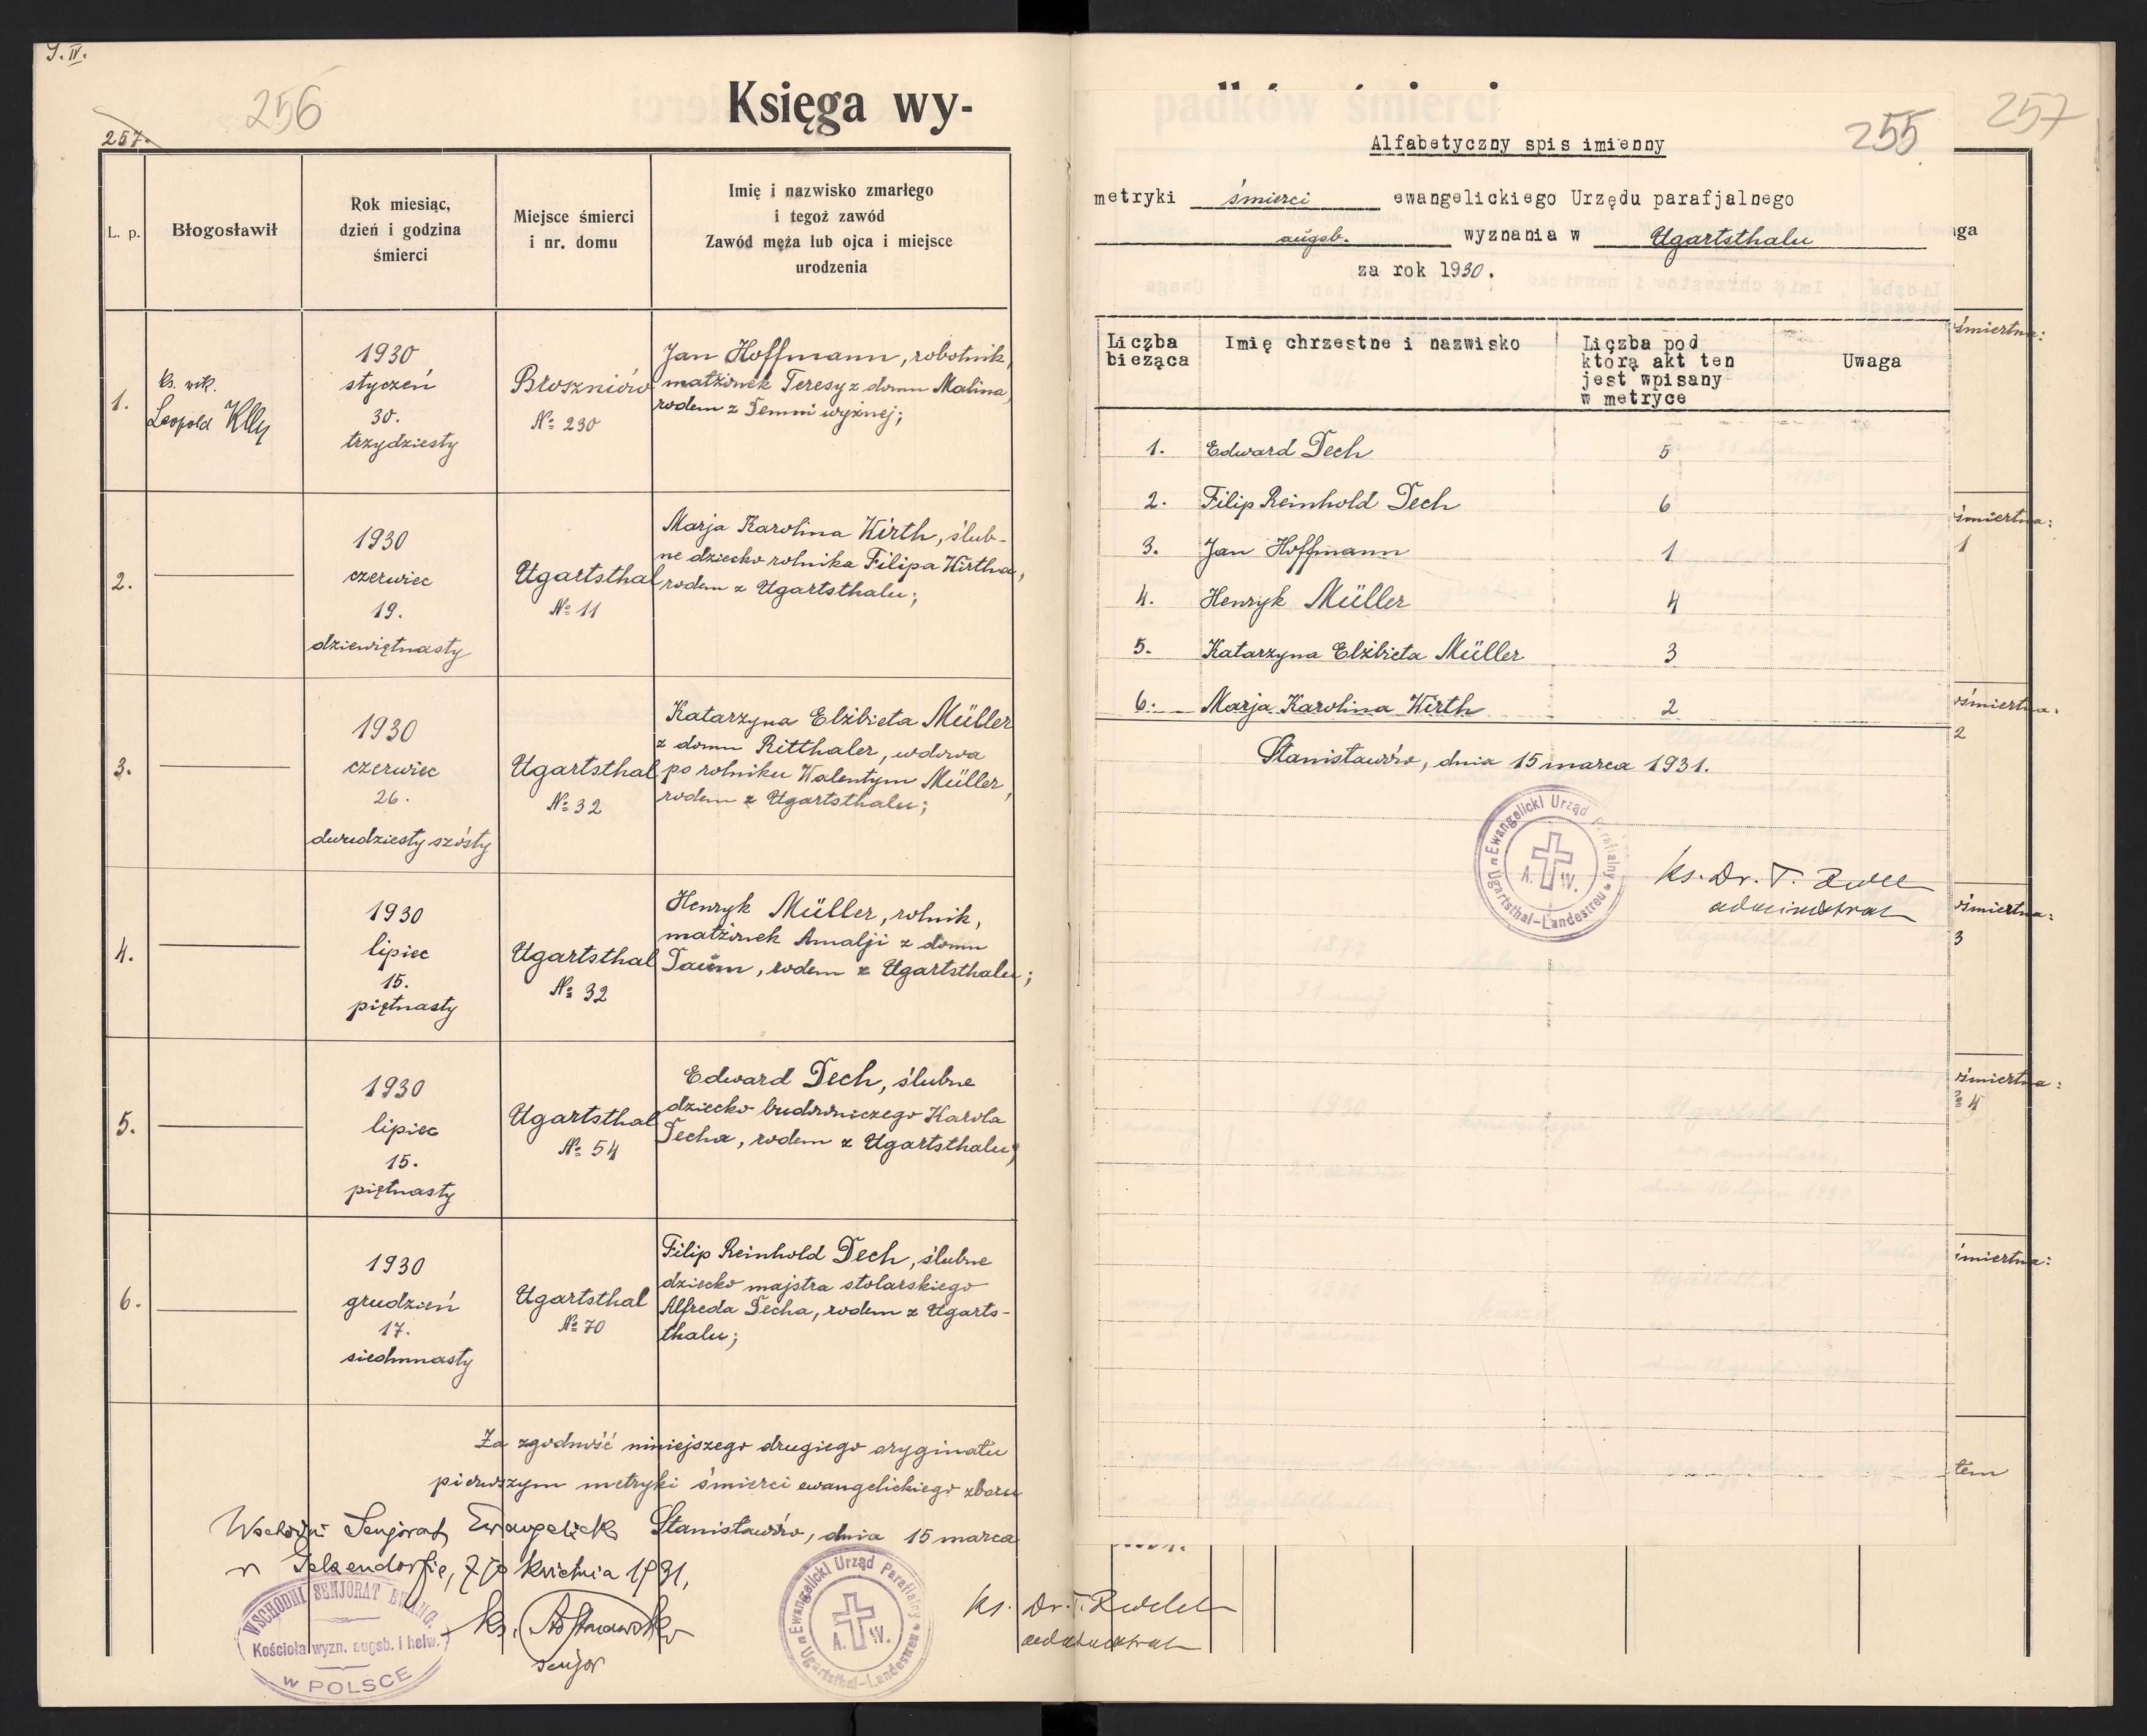 S. IV.
256
257.
Księga wy-
L. p.
Błogosławił
Rok miesiąc,
dzień i godzina
śmierci
Miejsce śmierci
i nr. domu
Imię i nazwisko zmarłego
i tegoż zawód
Zawód męża lub ojca i miejsce
urodzenia
1.
ks. wik.
Leopold
1930
styczeń
30.
trzydziesty
Broszniów
№ 230
Jan Hoffmann, robotnik,
małżonek Teresy z domu Malina,
rodem z Temni wyżnej;
2.
1930
czerwiec
19.
dziewiętnasty
Ugartsthal
№ 11
Marja Karolina Wirth, ślub-
ne dziecko rolnika Filipa Wirtha,
rodem z Ugartsthalu;
3.
1930
czerwiec
26.
dwudziesty szósty
Ugartsthal
№ 32
Katarzyna Elżbieta Müller
z domu Ritthaler, wdowa
po rolniku Walentym Müller,
rodem z Ugartsthalu;
4.
1930
lipiec
15.
piętnasty
Ugartsthal
№ 32
Henryk Müller, rolnik,
małżonek Amalji z domu
Daum, rodem z Ugartsthalu;
5.
1930
lipiec
15.
piętnasty
Ugartsthal
№ 54
Edward Dech, ślubne
dziecko budowniczego Karola
Decha, rodem z Ugartsthalu;
6.
1930
grudzień
17.
siedmnasty
Ugartsthal
№ 70
Filip Reinhold Dech, ślubne
dziecko majstra stolarskiego
Alfreda Decha, rodem z Ugarts-
thalu;
Za zgodność niniejszego drugiego oryginału
pierwszym metryki śmierci ewangelickiego zboru
Stanisławów, dnia 15 marca
Wschodni Senjorat Ewangelicki
w Gelsendorfie, kwietnia 1931,
WSCHODNI SENJORAT EWANG.
Kościoła wyzn. augsb. i helw.
w POLSCE
ks.
senjor
Ewangelicki Urząd Parafialny
A. W.
Ugartsthal-Landestreu
ks. Dr. T.
administrator
257
255
Alfabetyczny spis imienny
metryki śmierci ewangelickiego Urzędu parafjalnego
augsb. wyznania w Ugartsthalu
za rok 1930.
Liczba
bieżąca
Imię chrzestne i nazwisko
Liczba pod
którą akt ten
jest wpisany
w metryce
Uwaga
1. Edward Dech 5
2. Filip Reinhold Dech 6
3. Jan Hoffmann 1
4. Henryk Müller 4
5. Katarzyna Elżbieta Müller 3
6. Marja Karolina Wirth 2
Stanisławów, dnia 15 marca 1931.
Ewangelicki Urząd Parafialny
A. W.
Ugartsthal-Landestreu
ks. Dr. T.
administrator
aga
śmiertna:
śmiertna:
1
ośmiertna:
2
ośmiertna:
3
śmiertna:
4
śmiertna:
tem